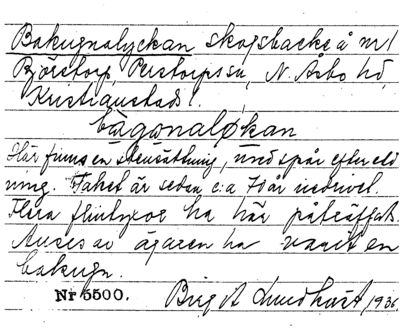 Bakugnalyckan skogsbacke å nr 1
Björstorp, Perstorps sn, N. Åsbo hd,
Kristianstads l.
bàgonaløkan
Här finns en stensättning, med spår efter eld
ning. Taket är sedan c:a 70 år nedrivet.
Flera flintyxor ha här påträffats.
Anses av ägaren ha varit en
bakugn.
Nr 5500. Birgit Lundkvist, 1936